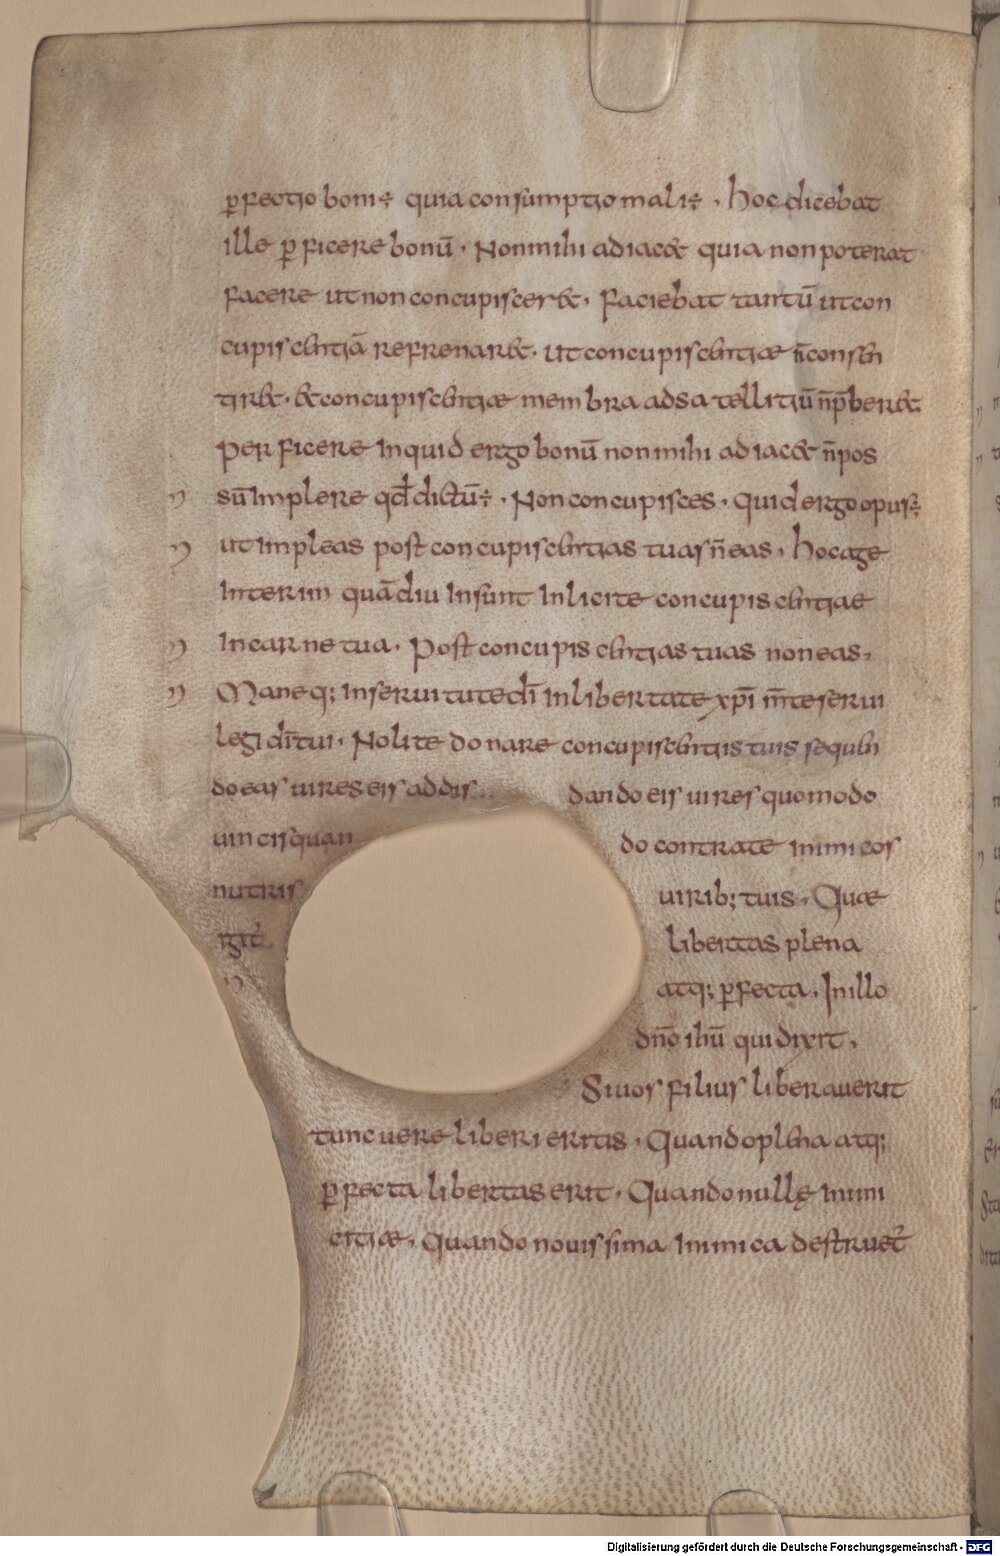 ꝑfectio boni÷ quia consumptio mali÷. hoc dicebat
ille ꝑficere bonū. Non mihi adiac& quia non poterat
facere ut non concupiscer&. faciebat tantū ut con
cupiscentiā refrenar&. ut concupiscentiæ n̄ consen
tir&. & concupiscentiæ membra ad satellitiū n̄ p̄ber&.
perficere inquid ergo bonū non mihi adiac& n̄ pos
sū implere qđ dictū÷. Non concupisces. quid ergo opus÷
ut impleas post concupiscentias tuas n̄ eas. hoc age
interim quādiu insunt inlicite concupiscentiae
in carne tua. post concupiscentias tuas non eas.
Maneq; in seruitute dī in libertate xp̄ī m̄te serui
legi dī tui. Nolite donare concupiscentiis tuis sequen
do eas uires eis addis dando eis uires quomodo
uincis quan do contra te inimicos
nutris uirib; tuis. Quæ
igit̄ libertas plena
atq; ꝑfecta. In illo
dn̄o ihū qui dixit.
Si uos filius liberauerit
tunc uere liberi eritis. Quando plena atq;
ꝑfecta libertas erit. Quando nullę inimi
citiæ. Quando nouissima inimica destruet̄
Digitalisierung gefördert durch die Deutsche Forschungsgemeinschaft - DFG